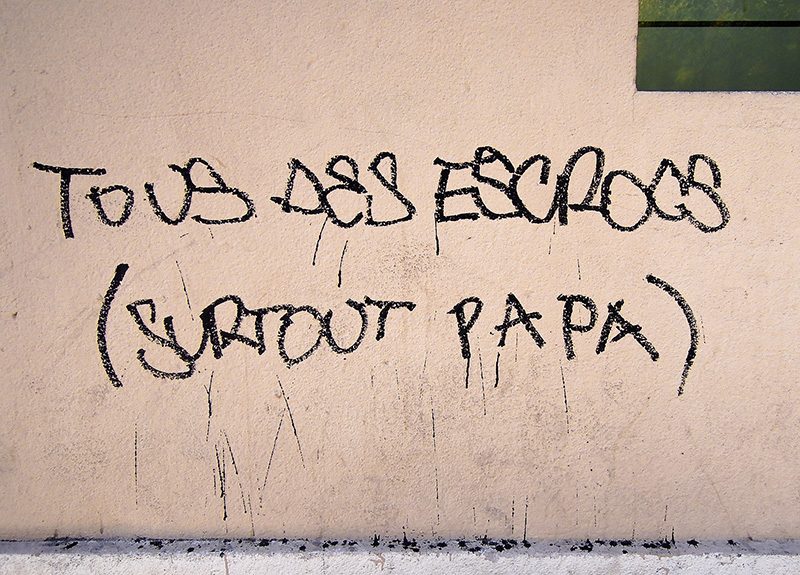 TOUS DES ESCROCS
(SURTOUT PAPA)